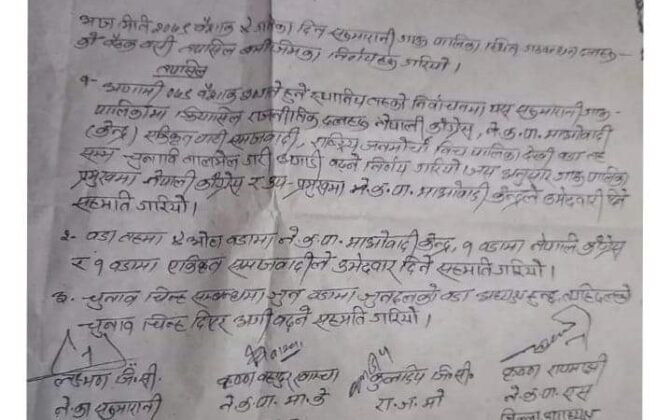 आज मिति २०७९ बैशाख ४ गतेका दिन सरुमारानी गाउँ पालिका स्थित गठबन्धन दलहरु-
को बैठक बसी तपसिल बमोजिमका निर्णयहरु गरियो।
तपसिल
१- आगामी ०७९ बैशाख ३० गते हुने स्थानिय तहको निर्वाचनमा यस सरुमारानी गाउँ-
पालिकामा क्रियासिल राजनीतिक दलहरु नेपाली काँग्रेस, ने.क.पा. माओवादी
(केन्द्र) एकिकृत समाजवादी, राष्ट्रिय जनमोर्चा बिच पालिका देखी वडा तह
सम्म चुनावि तालमेल गरी अगाडी बढ्ने निर्णय गरियो। जस अनुसार गाउँ पालिका
प्रमुखमा नेपाली काँग्रेस र उप-प्रमुखमा ने.क.पा. माओवादी केन्द्रले उमेदवारी दिने
सहमति गरियो।
२- वडा तहमा ४ ओटा वडामा ने.क.पा. माओवादी केन्द्र, १ वडामा नेपाली काँग्रेस
र १ वडामा एकिकृत समाजवादीले उमेदवार दिने सहमति गरियो।
३- चुनाव चिन्ह सम्बन्धमा जुन वडामा जुन दलको वडा अध्यक्ष हुन्छ, त्यहि दलको
चुनाव चिन्ह लिएर अगी बढ्ने सहमति गरियो।
लक्ष्मण जि.सी. कृष्ण बहादुर कुलदिप जि.सी. कृष्ण
ने.का सरुमारानी ने.क.पा. मा.के रा.ज.मो ने.क.पा. एस